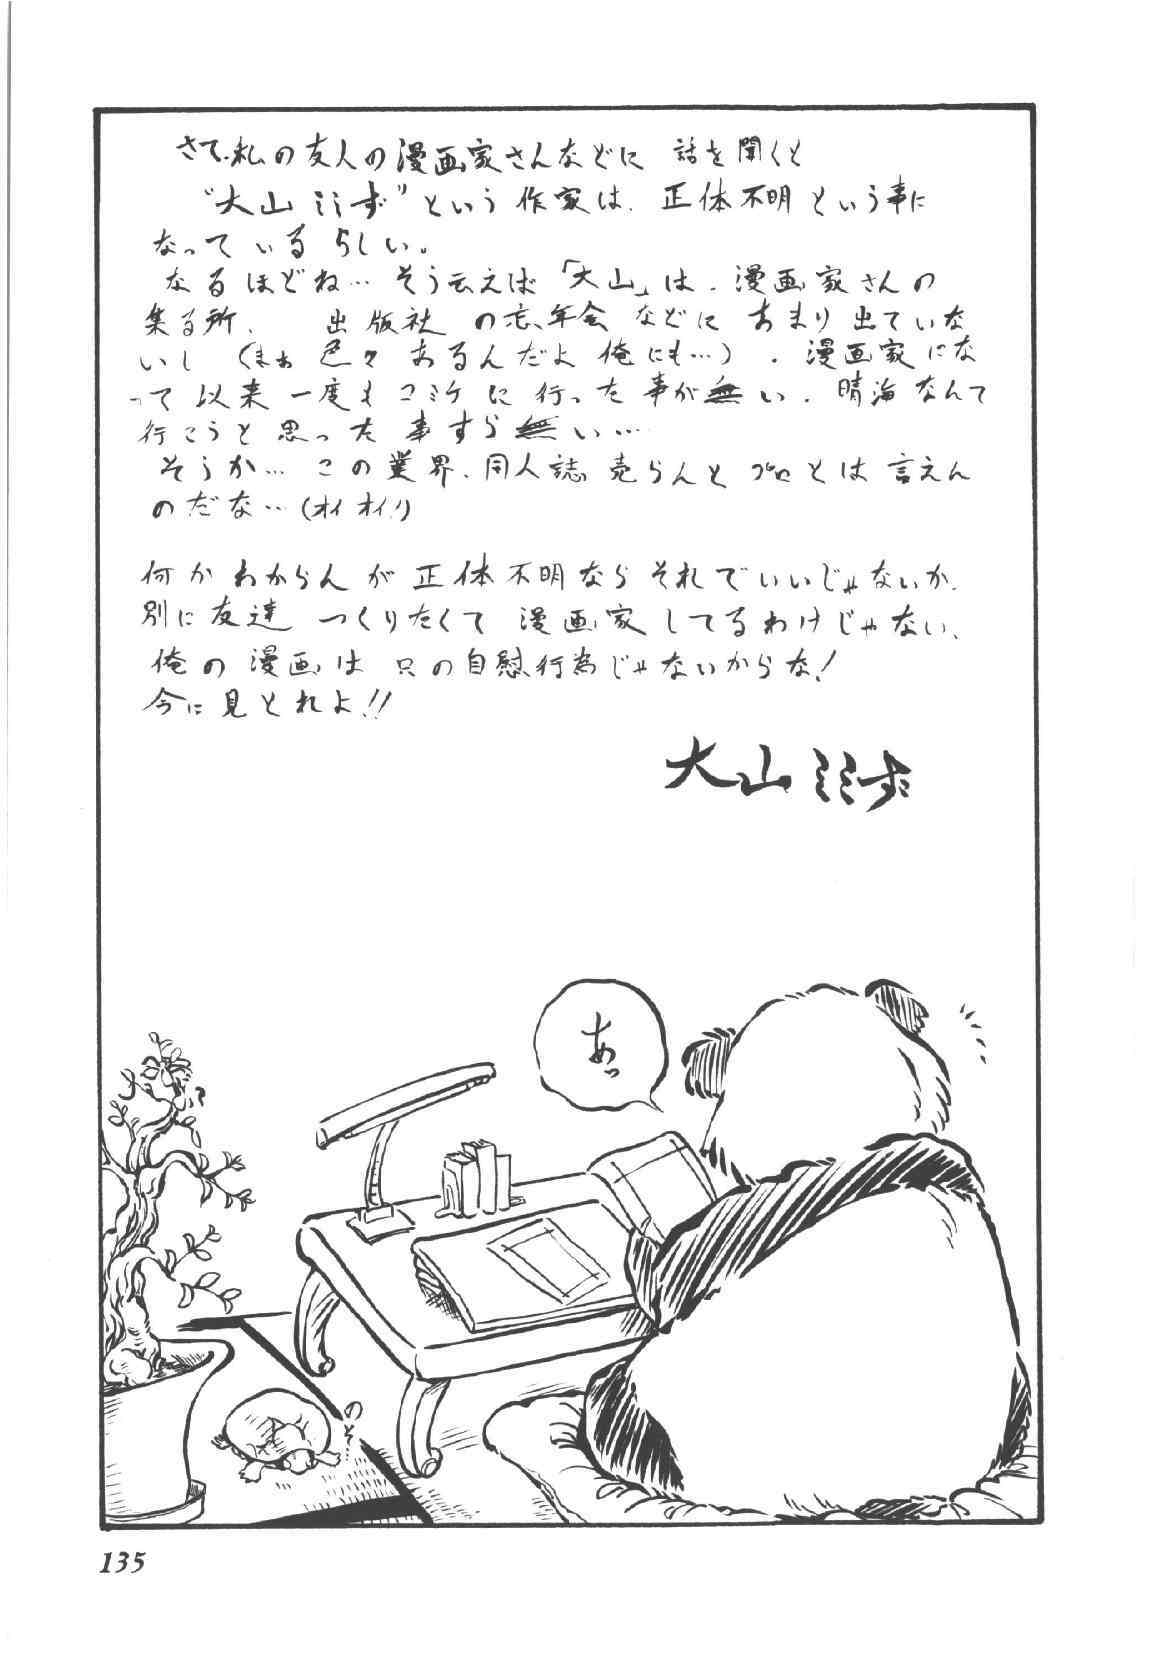 さて、私の友人の漫画家さんなどに 話を聞くと
“大山ミミず”という作家は、正体不明という事に
なっているらしい。
なるほどね… そう云えば「大山」は、漫画家さんの
集る所、 出版社の忘年会などにあまり出ていな
いし（まぁ色々あるんだよ俺にも…）、漫画家にな
って以来一度もコミケに行った事が無い、晴海なんて
行こうと思った事すら無い…
そうか… この業界、同人誌売らんとプロとは言えん
のだな…（オイオイ!）
何かわからんが正体不明ならそれでいいじゃないか、
別に友達つくりたくて漫画家してるわけじゃない、
俺の漫画は只の自慰行為じゃないからな!
今に見とれよ!!
大山ミミず
あっ
のそ
135